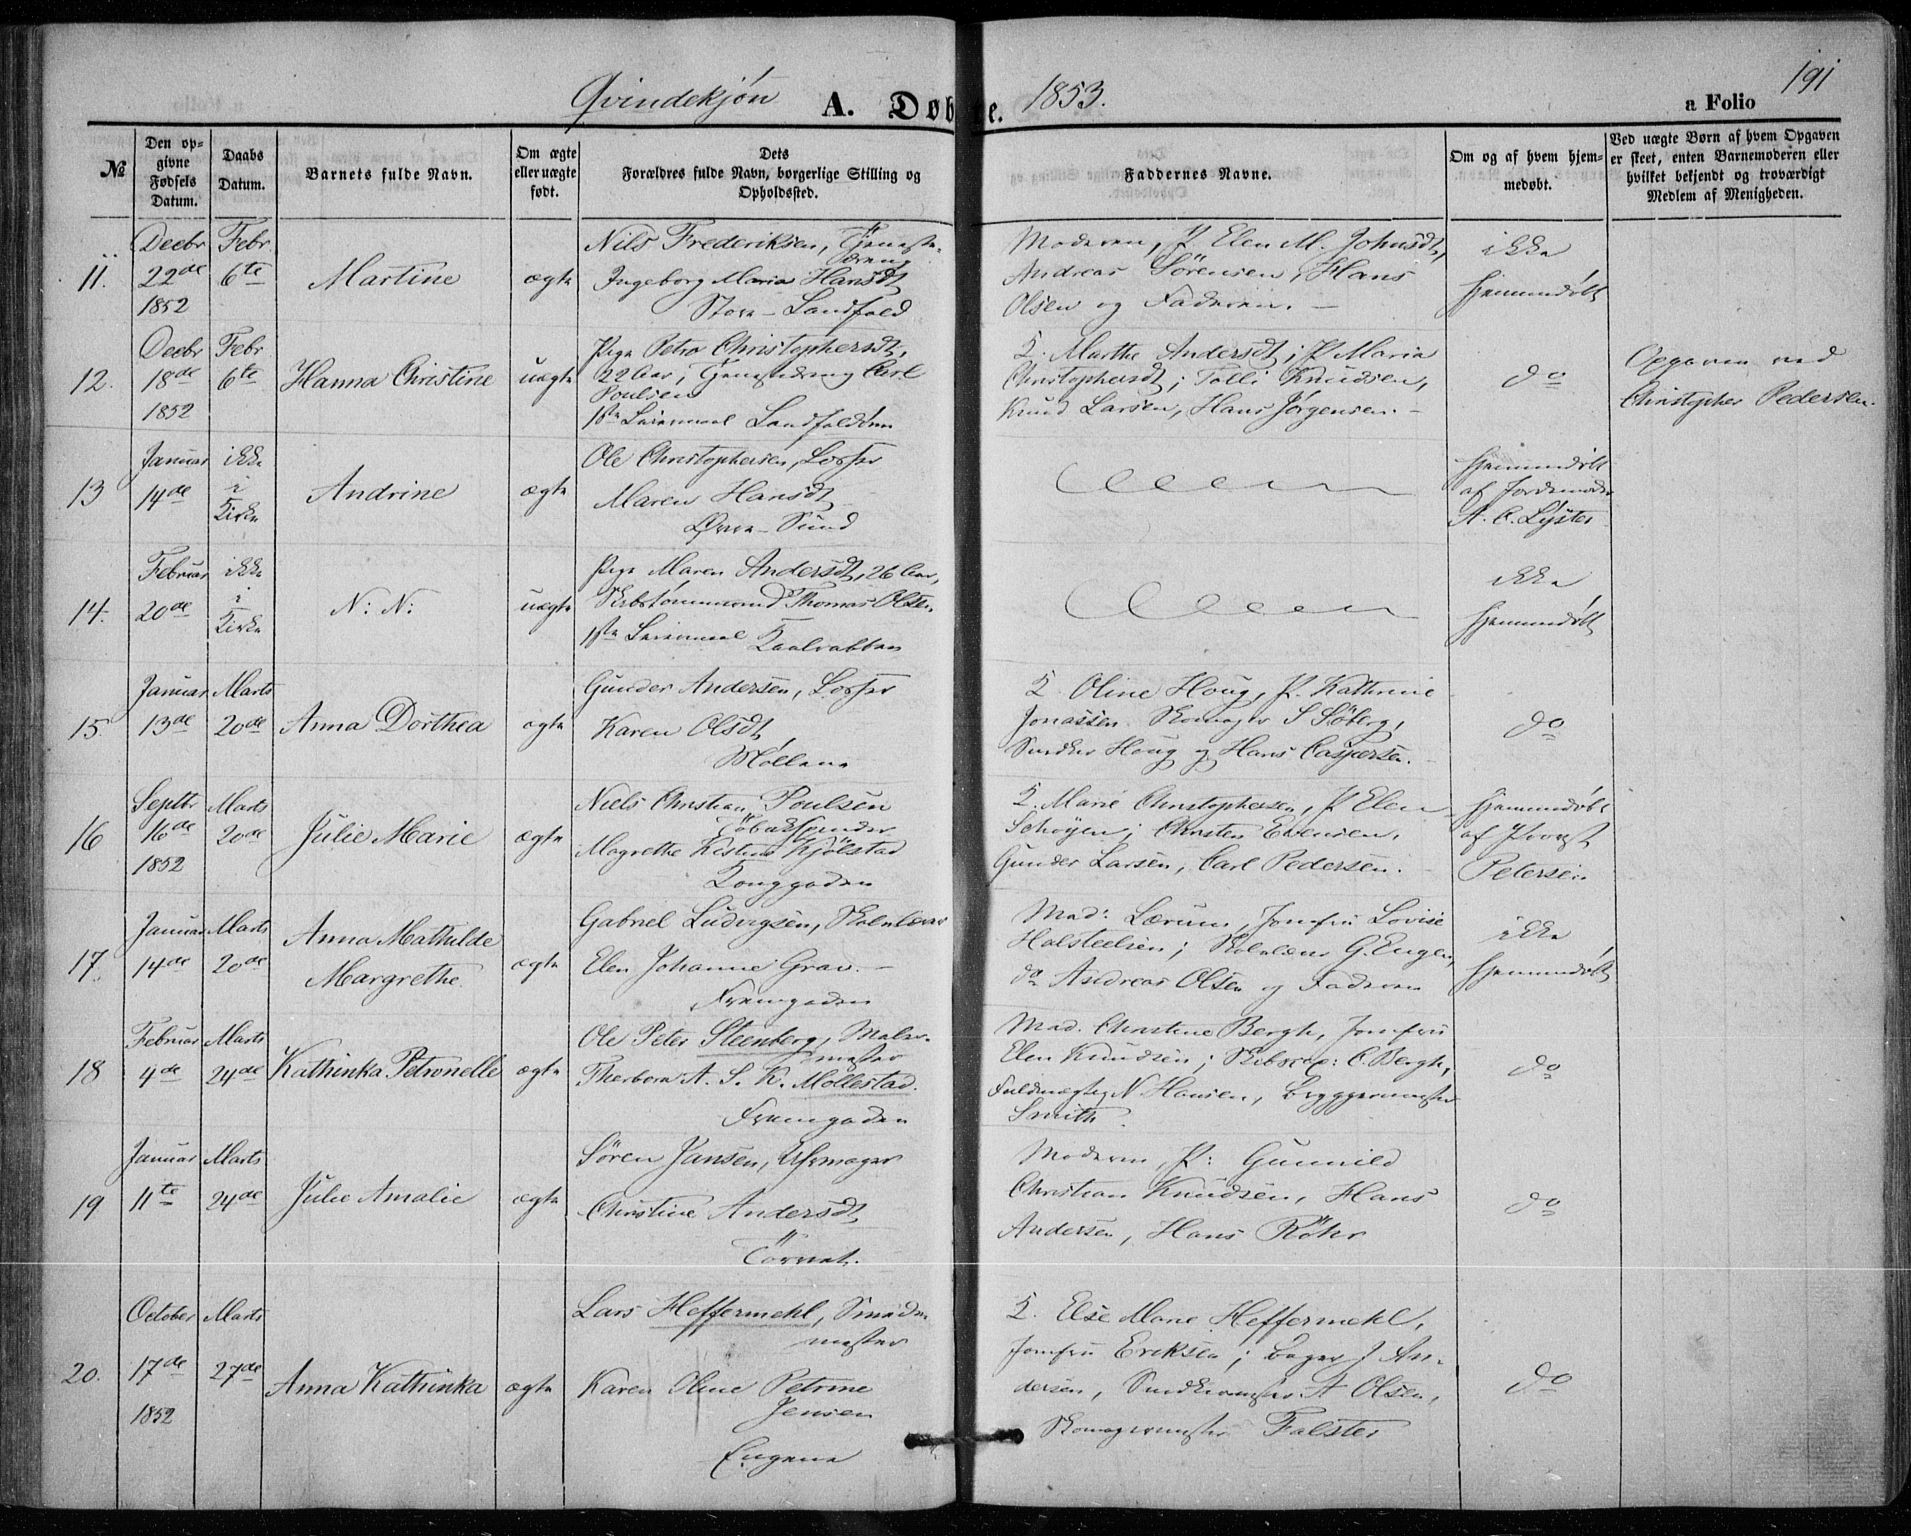 Qvindekjøn A. Døbte. 1853.
191
a Folio
No
Den opgivne Fødsels Datum.
Daabs Datum.
Barnets fulde Navn.
Om ægte eller uægte født.
Dets Forældres fulde Navn, borgerlige Stilling og Opholdssted.
Faddernes Navne.
Om og af hvem hjemmedøbt.
Ved uægte Børn af hvem Opgaven er skeet, enten Barnemoderen eller hvilket bekjendt og troværdigt Medlem af Menigheden.
11.
Decbr 22de 1852
Febr. 6te
Martine
ægte
Nils Frederiksen, Tjenestedreng
Ingeborg Maria Hansdt
Store-Landfald
Moderen, P. Elen M. Johnsdt,
Andreas Sörensen, Hans
Olsen og Faderen.
ikke
hjemmedöbt
12.
Decbr 18de 1852
Febr 6te
Hanna Christine
uægte
Pige Petro Christophersdt,
22 Aar, Tjenestdreng Carl
Poulsen
1ste Leiermaal Landfaldöen
K. Marthe Andersdt; P. Maria
Christophersdt; Tolli Knudsen,
Knud Larsen, Hans Jörgensen.
do
Opgaven ved
Christopher Pedersen.
13
Januar 14de
ikke i Kirke
Andrine
ægte
Ole Christophersen, Losser
Maren Hansdt
Övre-Sund
hjemmedöbt
af Jordemoder
A. C. Lyster
14.
Februar 20de
ikke i Kirke
N: N:
uægte
Pige Maren Andersdt, 26 Aar,
Skibstömmermand Thomas Olsen.
1ste Leiermaal
ikke
hjemmedöbt
15.
Januar 13de
Marts 20de
Anna Dorthea
ægte
Gunder Andersen, Losser
Karen Olsdt,
Möllene
K. Oline Houg, P. Kathrine
Jonassen. Skomager S Söberg,
Snedker Houg og Hans Caspersen.
do
16
Septbr 16de 1852
Marts 20de
Julie Marie
ægte
Niels Christian Poulsen
Tobakspinder
Magrethe Kistine Kjölstad
Konggaden
K. Marie Christophersen, P. Elen
Schöyen; Christen Evensen,
Gunder Larsen, Carl Pedersen.
hjemmedöbt
af Provst
Petersen
17.
Januar 14de
Marts 20de
Anna Mathilde
Margrethe
ægte
Gabriel Ludvigsen, Skolelærer
Elen Johanne Grav.
Fremgaden
Mad: Lærum, Jomfru Lovise
Holsteelsen; Skolelærer G. Engen,
do Andreas Olsen og Faderen
ikke
hjemmedöbt
18
Februar 4de
Marts 24de
Kathinka Petronelle
ægte
Ole Peter Steenberg, Malermester
Therborn A. S. K. Mollestad.
Fremgaden
Mad. Christine Bergh, Jomfru
Elen Knudsen; Skibscp: C. Bergh,
Fuldmægtig N Hansen, Bryggermester
Smith.
do
19
Januar 11te
Marts 24de
Julie Amalie
ægte
Sören Jansen, Uhrmager
Christine Andersdt,
Törvet.
Moderen, P: Gunnild
Christian Knudsen, Hans
Andersen, Hans Röhr
do
20.
October 17de 1852
Marts 27de
Anna Kathinka
ægte
Lars Heffermehl, Smedemester
Karen Oline Petrine
Jensen
Engene
K. Else Marie Heffermehl,
Jomfru Eriksen; Bager J An-
dersen, Snedkermester A Olsen,
Skomagermester Falster
do